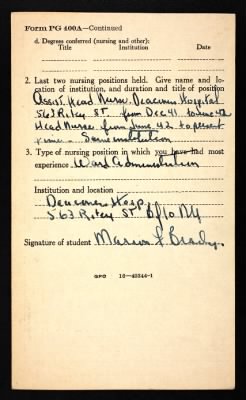 Form PG 400A—Continued
d. Degrees conferred (nursing and other):
Title Institution Date
2. Last two nursing positions held. Give name and lo-
cation of institution, and duration and title of position
Assist. Head Nurse. Deaconess Hospital
563 Riley St from Dec 41 to June 42
Head Nurse from June 42 to present
time - Same institution
3. Type of nursing position in which you have had most
experience Ward Administration
Institution and location
Deaconess Hosp.
563 Riley St Bflo NY
Signature of student Marion L. Brady
GPO 16—43244-1